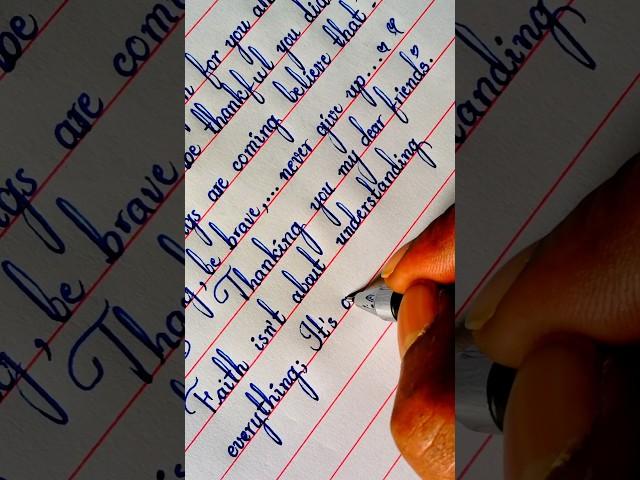 for you
be thankful you did
gs are coming believe that
, be brave,... never give up...
Thanking you my dear friends.
Faith isn't about understanding
everything; It's